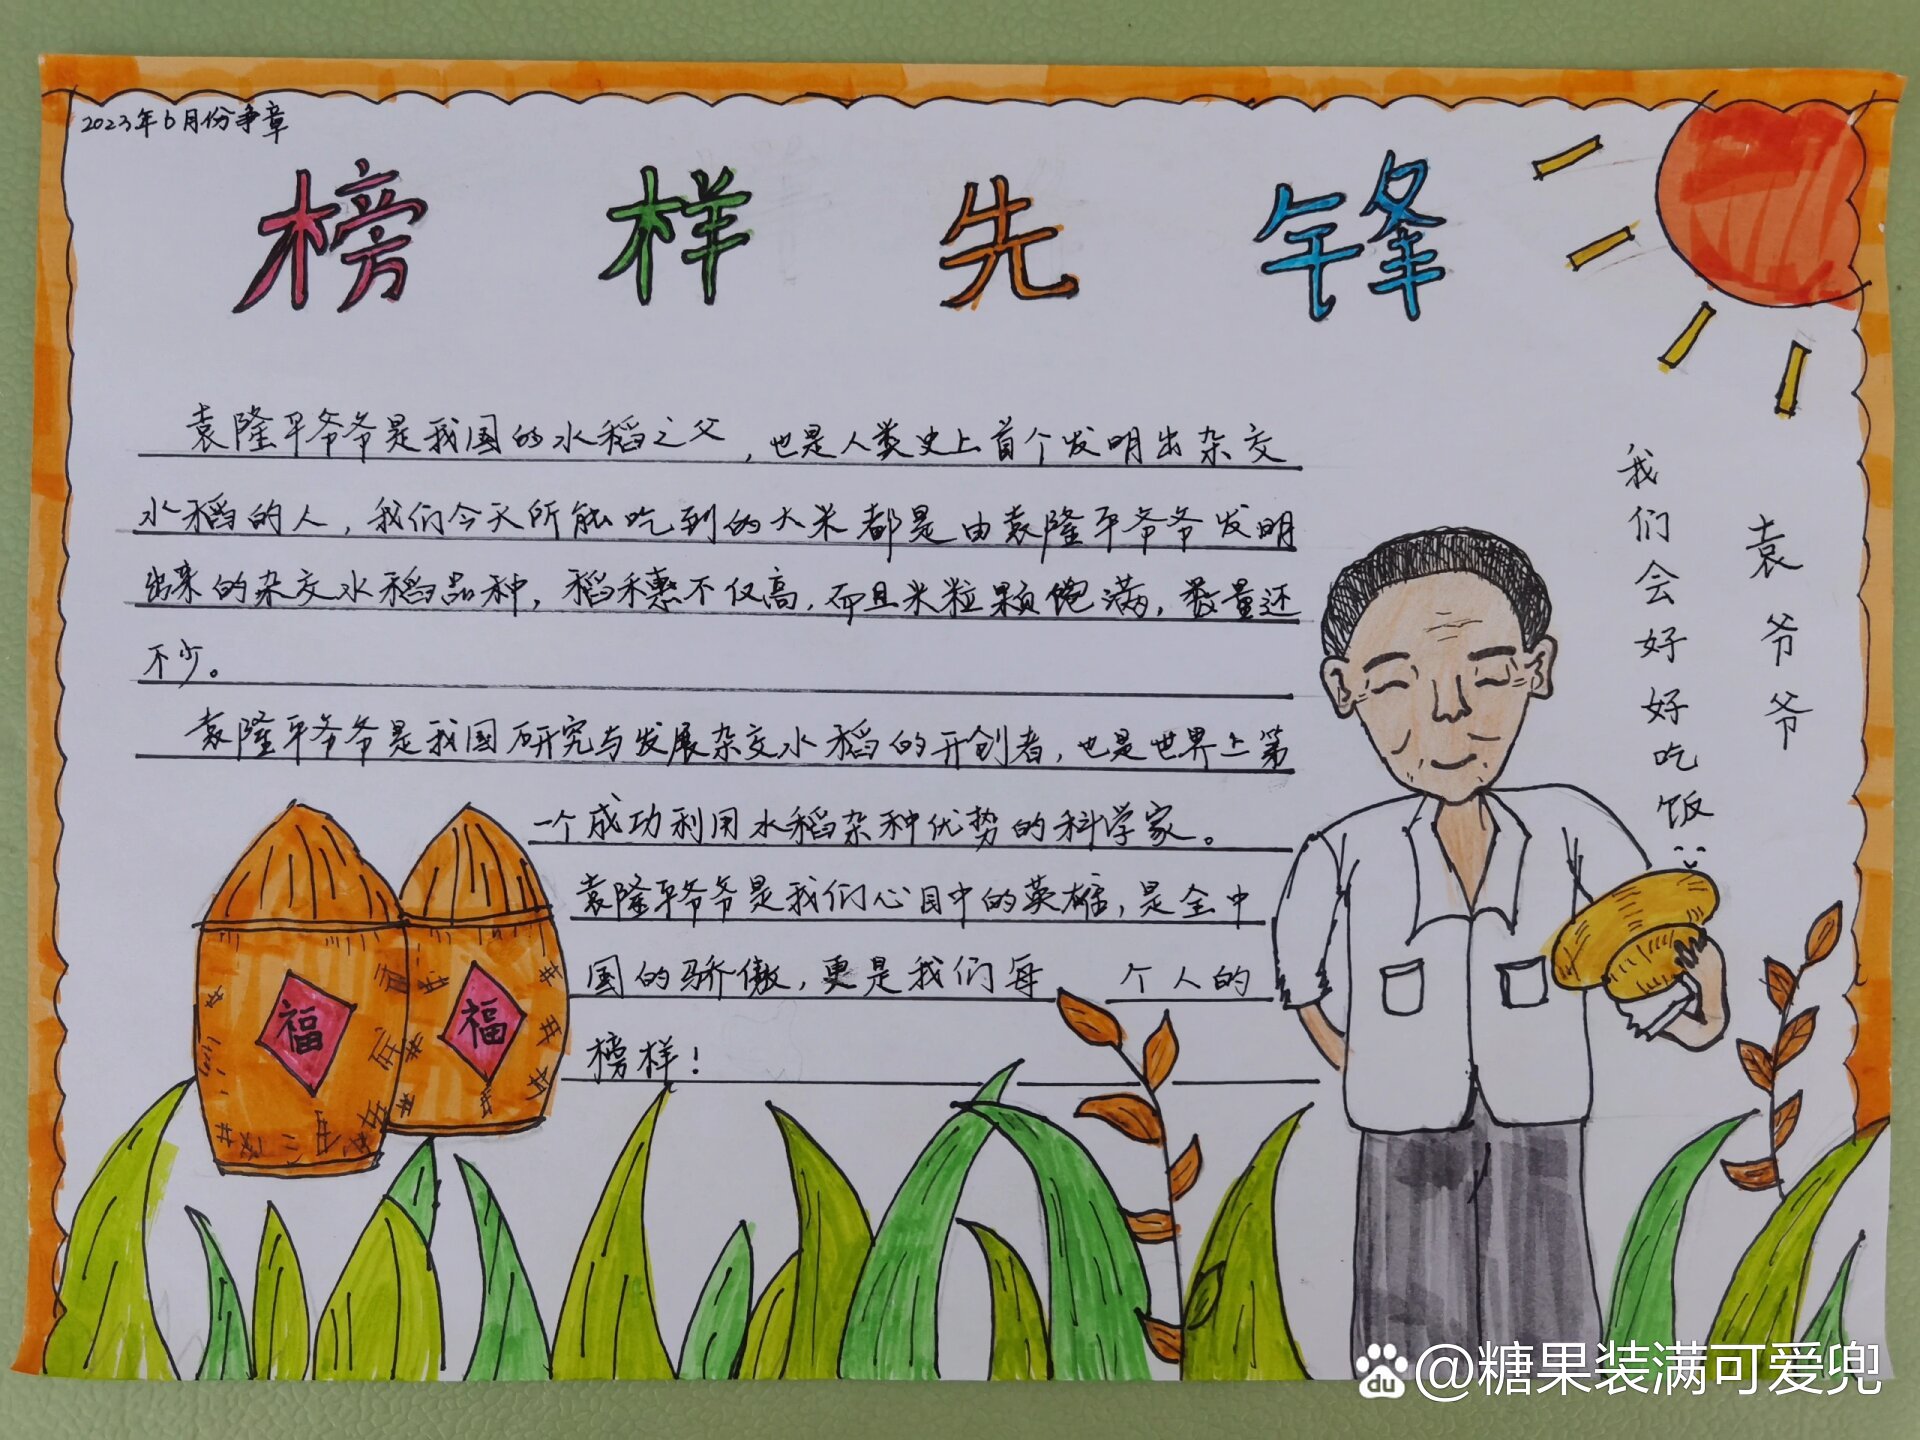 2023年6月份争章
榜样先锋
袁隆平爷爷是我国的水稻之父，也是人类史上首个发明出杂交
水稻的人，我们今天所能吃到的大米都是由袁隆平爷爷发明
出来的杂交水稻品种，稻穗不仅高，而且米粒颗饱满，数量还
不少。
袁隆平爷爷是我国研究与发展杂交水稻的开创者，也是世界上第
一个成功利用水稻杂种优势的科学家。
袁隆平爷爷是我们心目中的英雄，是全中
国的骄傲，更是我们每个人的
榜样！
袁爷爷
我们会好好吃饭
福
福
@糖果装满可爱兜